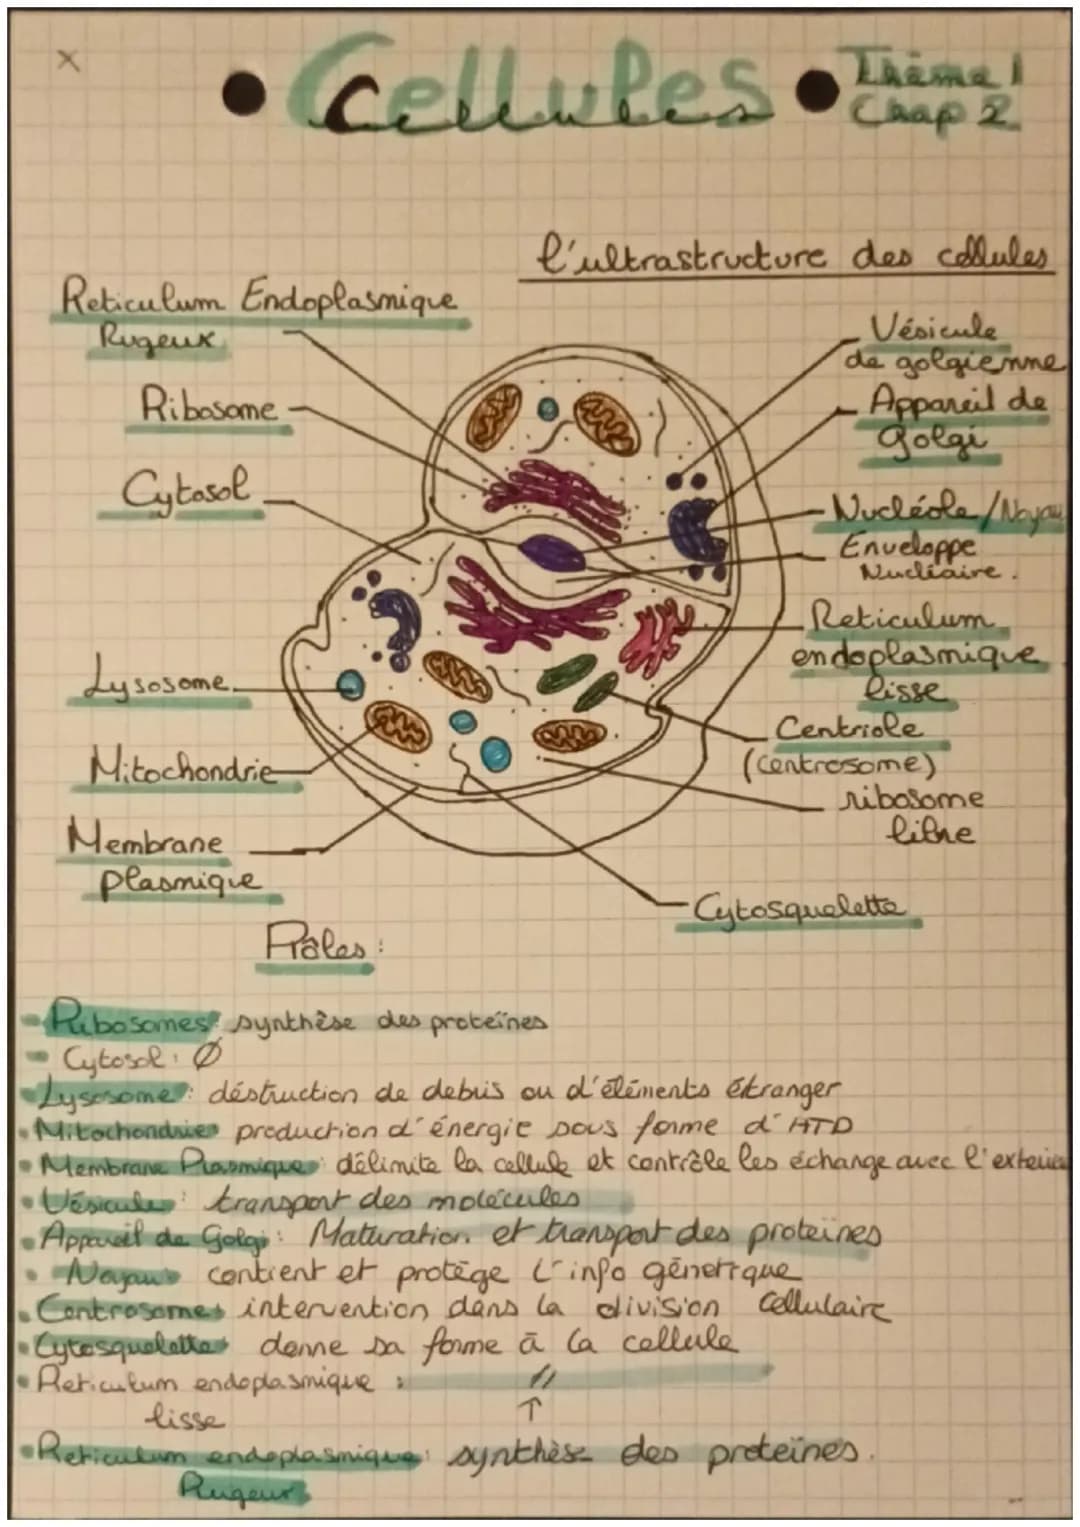 Cellules
Thème 1
Chap 2
l'ultrastructure des cellules
Reticulum Endoplasmique
Rugeux
Ribosome
Cytosol
Lysosome
Mitochondrie
Membrane
plasmique
Vésicule
de golgienne
Appareil de
Golgi
Nucléole/Noyau
Enveloppe
Nucléaire.
Reticulum
endoplasmique
lisse
Centriole
(centrosome)
ribosome
libre
Cytosquelette
Rôles:
Ribosomes: synthèse des proteïnes
Cytosol: Ø
Lysosome: déstruction de debris ou d'éléments étranger
Mitochondries production d'énergie sous forme d'ATD
Membrane Plasmique: délimite la cellule et contrôle les échange avec l'exterieu
Vésicule: transport des molécules
Appareil de Golgi: Maturation et transport des proteïnes
Noyau contient et protège l'info génétique
Centrosomes intervention dans la division cellulaire
Cytosquelette donne sa forme à la cellule
Reticulum endoplasmique : //
lisse ↑
Reticulum endoplasmique: synthèse des proteïnes.
Rugeux